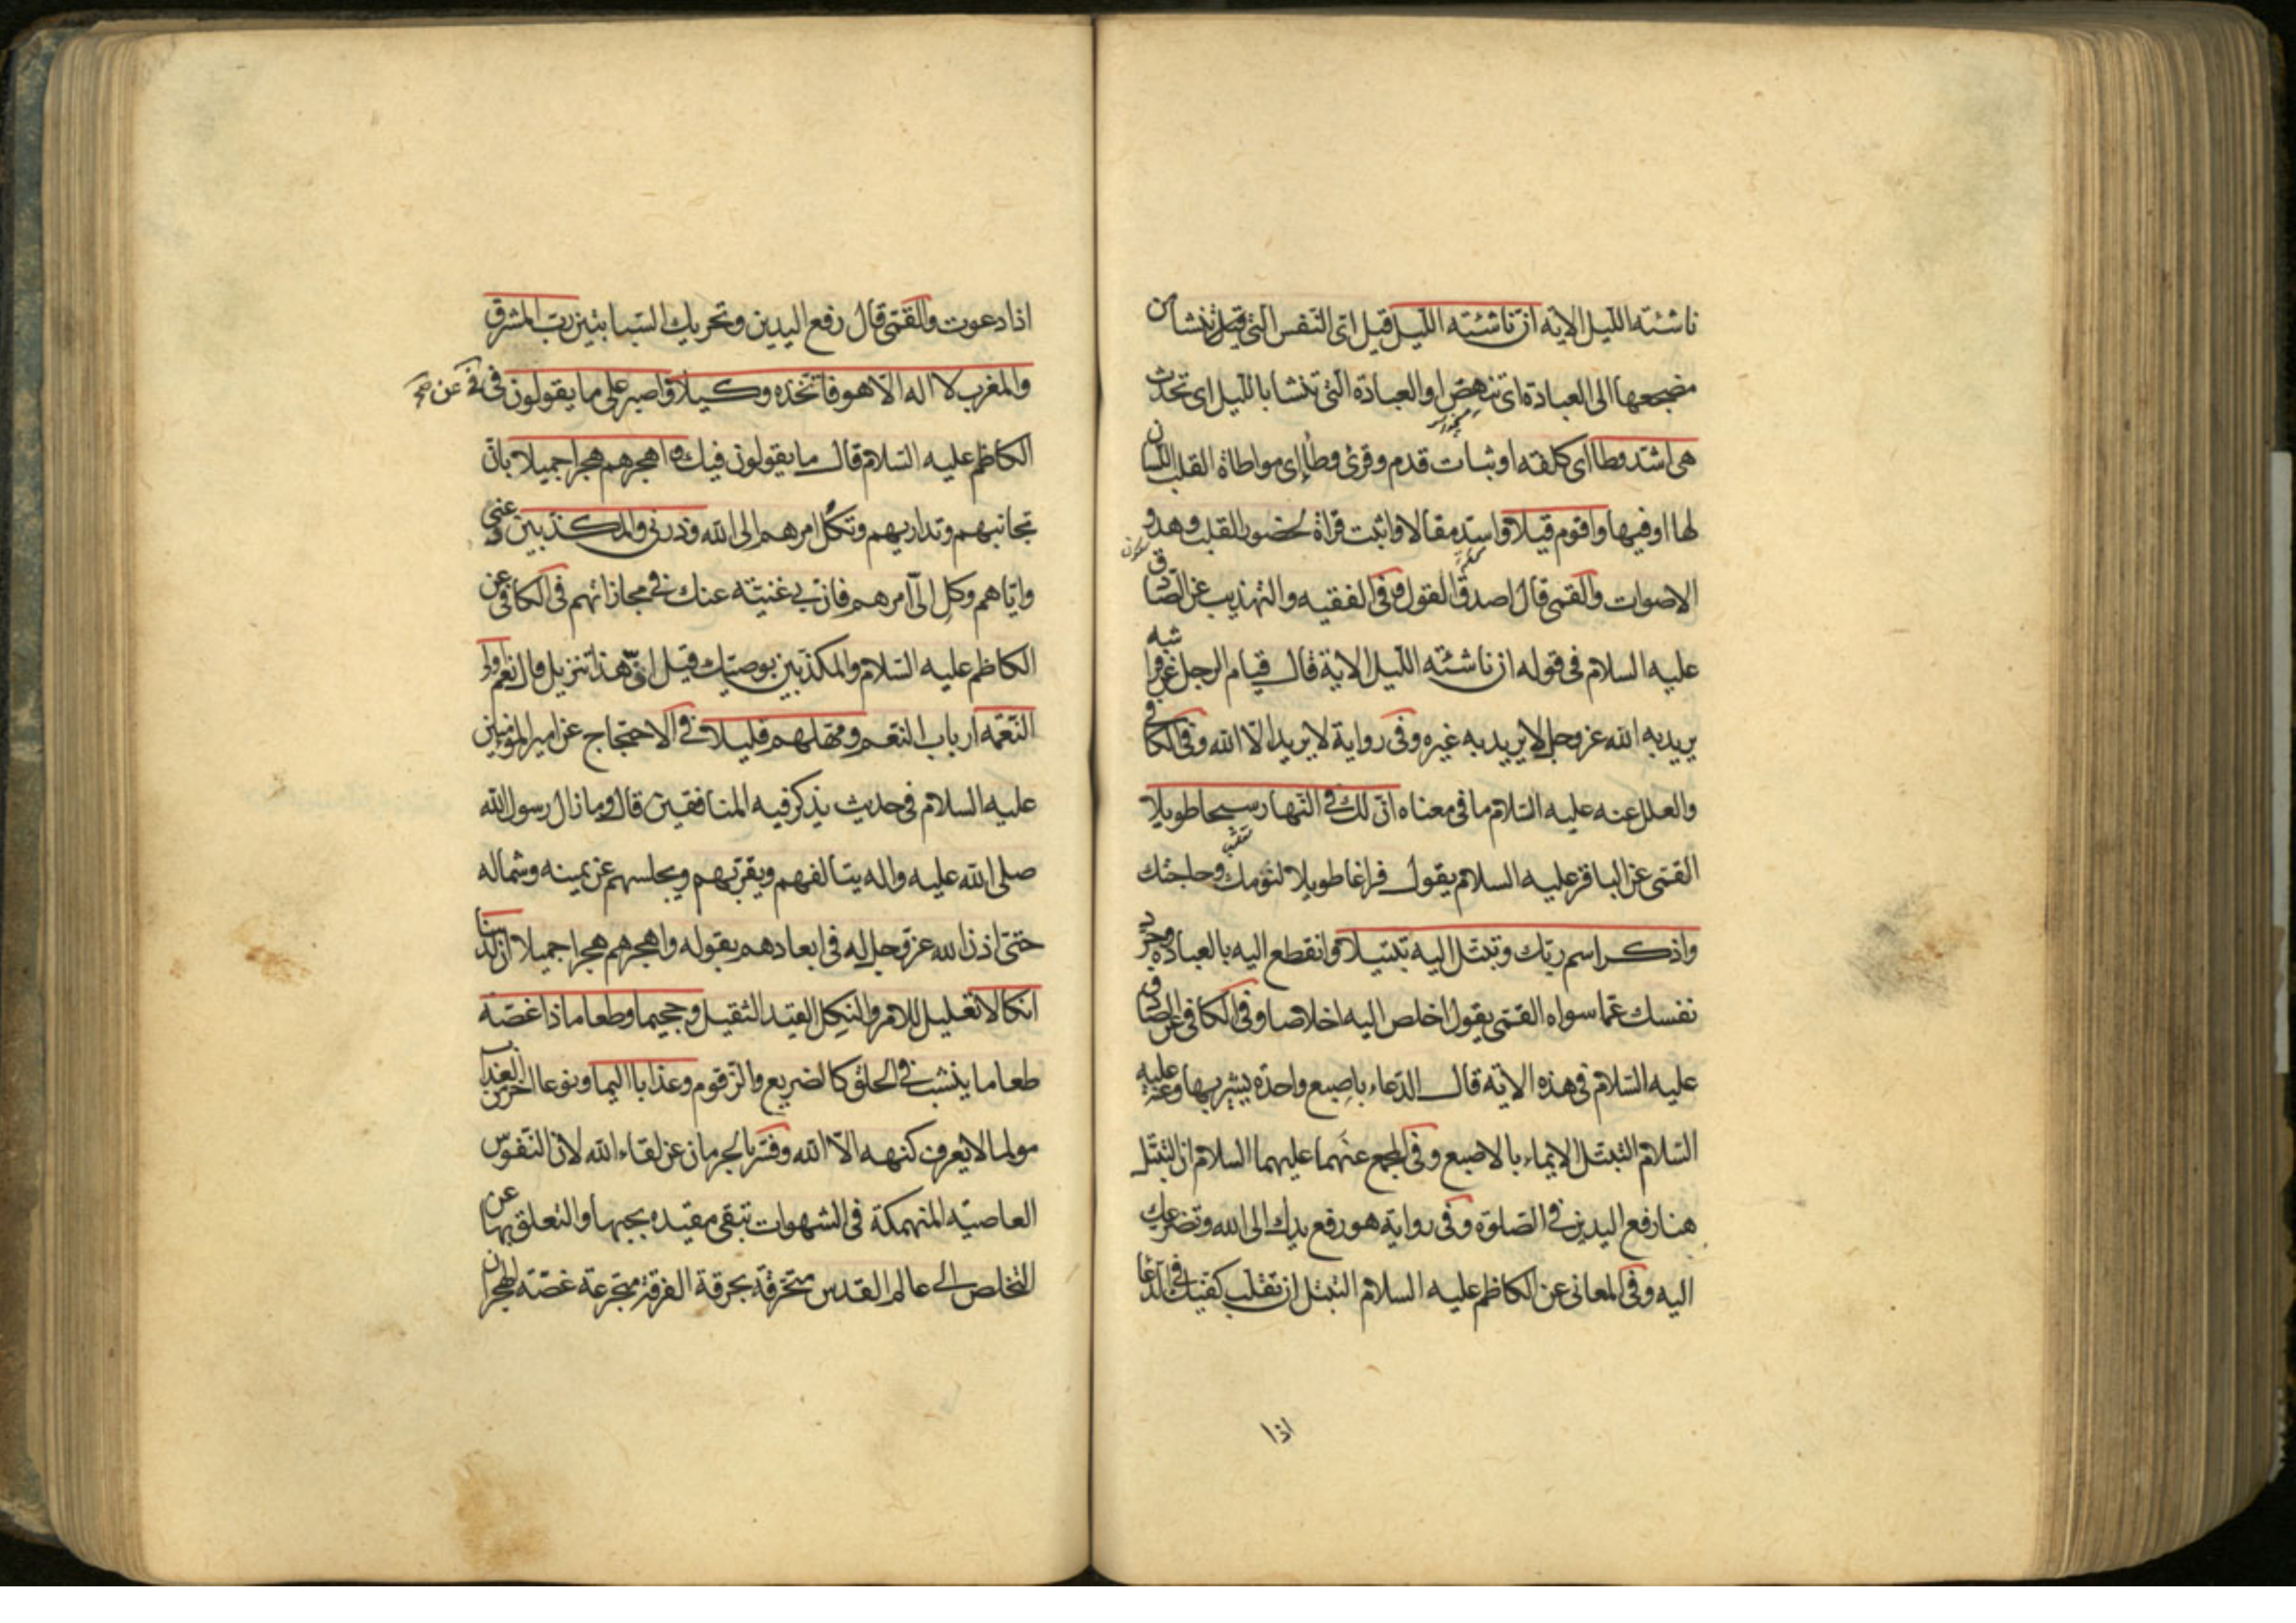 ناشئته الليل الاية ان ناشئته الليل قيل اى النفس التى تنشا من
مضجعها الى العبادة اى تنهض او العبادة التى تنشا بالليل اى تحدث
هى اشد وطا اى كلفته او ثبات قدم وقرئ وطاء اى مواطاة القلب اللسان
لها او فيها واقوم قيلا واسد مقالا واثبت قراة لحضور القلب وهدو
الاصوات والقمى قال اصدق القول وفى الفقيه والتهذيب عن الصادق
عليه السلام فى قوله ان ناشئته الليل الاية قال قيام الرجل عن فراشه
يريد به الله عز وجل لا يريد به غيره وفى رواية لا يريد الا الله وفى الكافى
والعلل عنه عليه السلام ما فى معناه ان لك فى النهار سبحا طويلا
القمى عن الباقر عليه السلام يقول فراغا طويلا لنومك وحاجتك
واذكر اسم ربك وتبتل اليه تبتيلا وانقطع اليه بالعبادة وجرد
نفسك عما سواه القمى يقول اخلص اليه اخلاصا وفى الكافى عن الصادق
عليه السلام فى هذه الاية قال الدعاء باصبع واحدة يشير بها وعنه عليه
السلام التبتل الايماء بالاصبع وفى المجمع عنهما عليهما السلام ان التبتل
هنا رفع اليدين فى الصلوة وفى رواية هو رفع يدك الى الله وتضرعك
اليه وفى المعانى عن الكاظم عليه السلام التبتل ان تقلب كفيك فى الدعا
اذا
اذا دعوت والقمى قال رفع اليدين وتحريك السبابتين رب المشرق
والمغرب لا اله الا هو فاتخذه وكيلا واصبر على ما يقولون فى فى عن
الكاظم عليه السلام قال ما يقولون فيك واهجرهم هجرا جميلا بان
تجانبهم وتداريهم وتكل امرهم الى الله وذرنى والمكذبين عنى
واياهم وكل الى امرهم فان بى غنيته عنك فى مجازاتهم فى الكافى عن
الكاظم عليه السلام والمكذبين بوصيك قيل ان هذا تنزيل قال نعم اولى
النعمه ارباب التنعم ومهلهم قليلا فى الاحتجاج عن امير المؤمنين
عليه السلام فى حديث يذكر فيه المنافقين قال وما زال رسول الله
صلى الله عليه واله يتالفهم ويقربهم ويجلسهم عن يمينه وشماله
حتى اذن الله عز وجل له فى ابعادهم بقوله واهجرهم هجرا جميلا ان لدينا
انكالا تعليل للامر والنكل القيد الثقيل وجحيما وطعاما ذا غصة
طعاما ينشب فى الحلق كالضريع والزقوم وعذابا اليما ونوعا اخر من العذاب
مولما لا يعرف كنهه الا الله وفسر بالحرمان عن لقاء الله لان النفوس
العاصيه المنهمكة فى الشهوات تبقى مقيده بحبها والتعلق بها عن
التخلص الى عالم القدس متحرقة بحرقة الفرقة متجرعة غصة الهجران